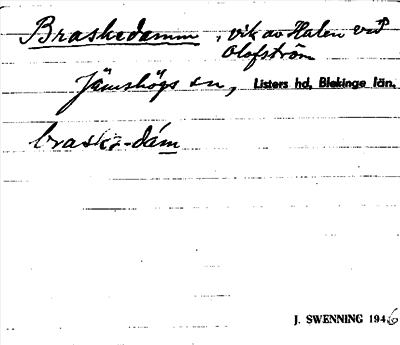 Braskedamm, vik av Halen vid
Olofström
Jämshögs sn, Listers hd, Blekinge län.
braskə-dám
J. SWENNING 1946